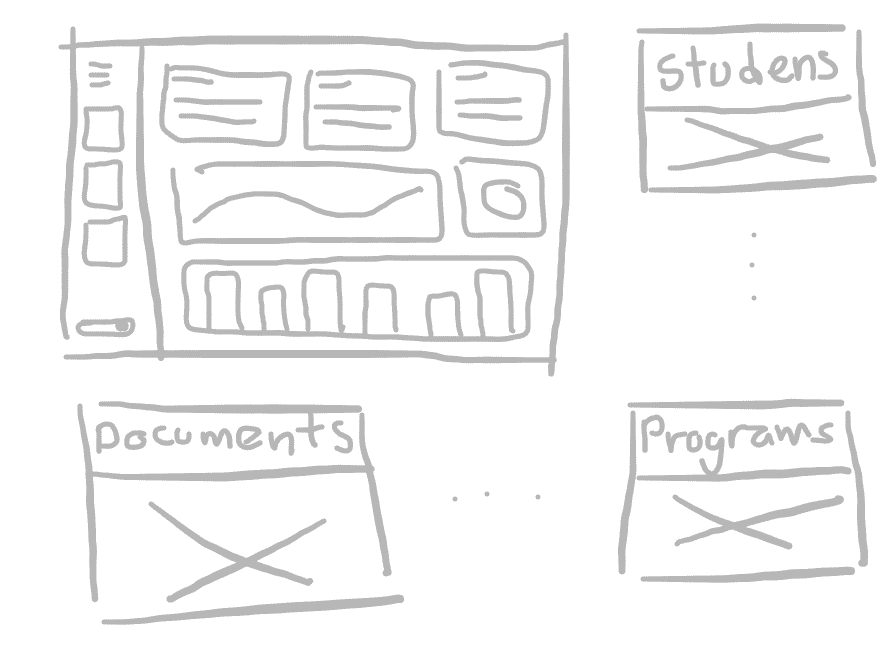 Studens
Documents
Programs